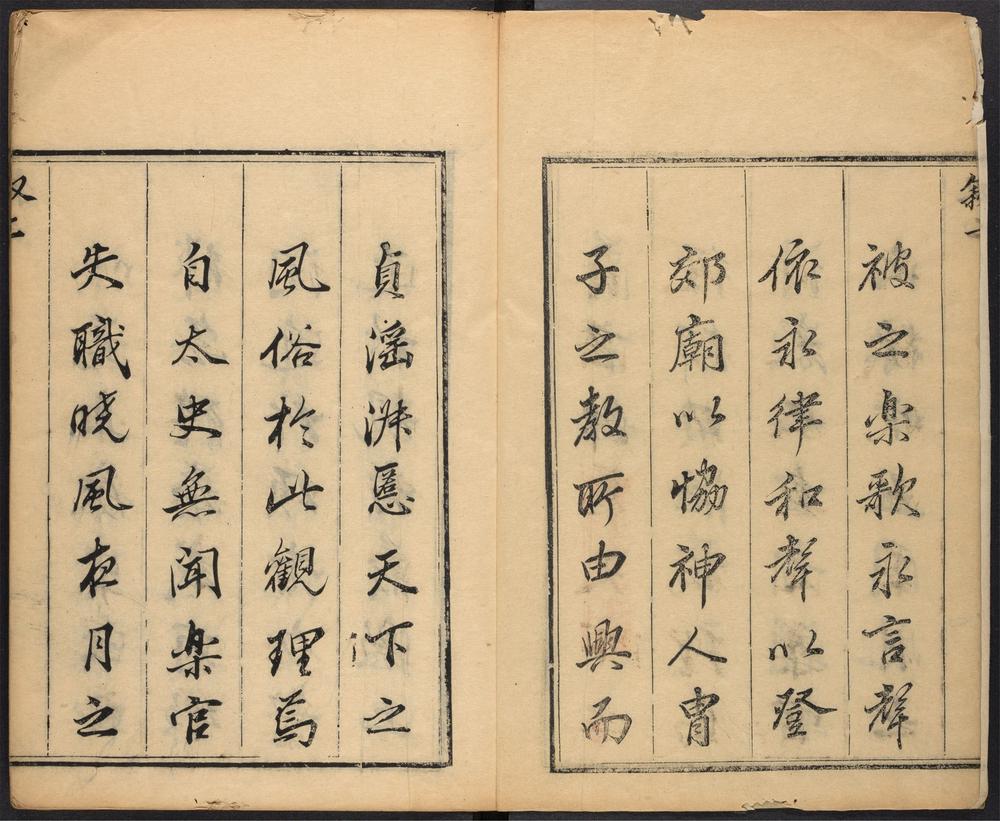 敘一
被之樂歌永言聲
依永律和聲以登
郊廟以恊神人胄
子之教所由興而
貞滛淑慝天下之
風俗於此觀理焉
自太史無聞樂官
失職晓風夜月之
叙二